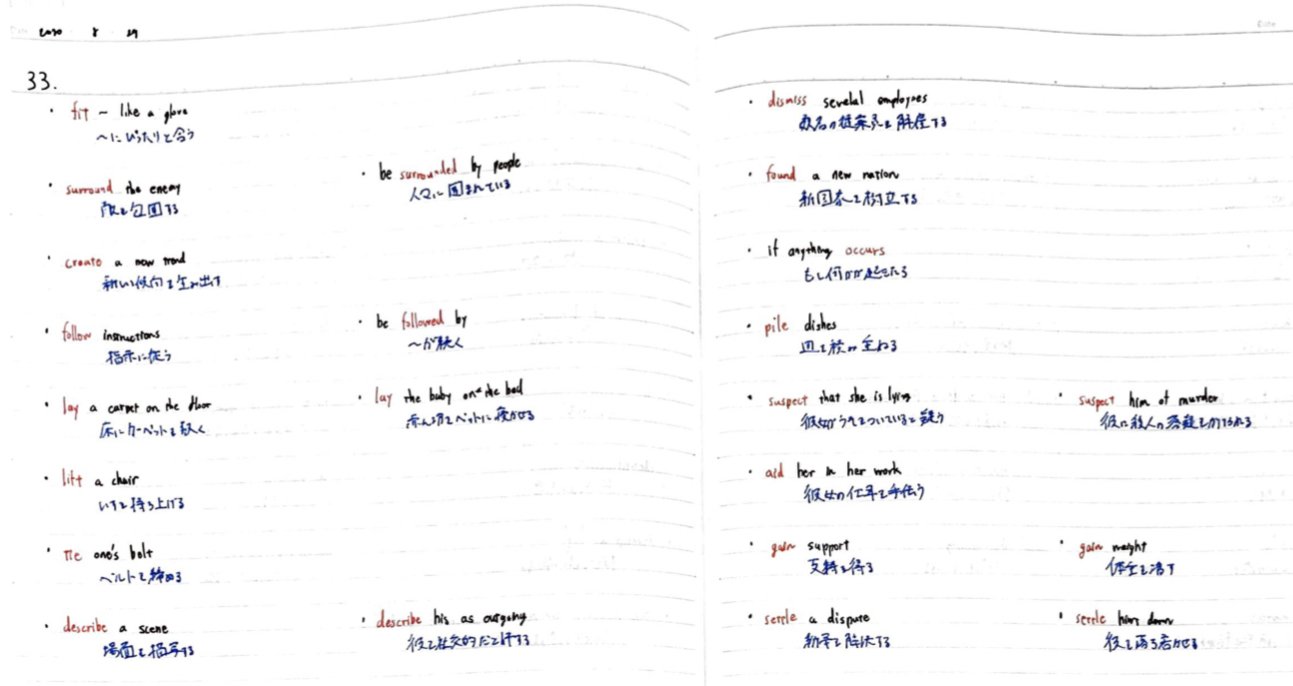 2020 8 29
33.
・fit ~ like a glove
〜にぴったりと合う
・surround the enemy
敵を包囲する
・be surrounded by people
人々に囲まれている
・create a new trend
新しい傾向を生み出す
・follow instructions
指示に従う
・be followed by
〜が続く
・lay a carpet on the floor
床にカーペットを敷く
・lay the baby on the bed
赤ん坊をベットに寝かせる
・lift a chair
いすを持ち上げる
・tie one's belt
ベルトを締める
・describe a scene
場面を描写する
・describe his as outgoing
彼を社交的だと評する
・dismiss several employees
数名の従業員を解雇する
・found a new nation
新国家を樹立する
・if anything occurs
もし何かが起こったら
・pile dishes
皿を積み重ねる
・suspect that she is lying
彼女がうそをついていると疑う
・suspect him of murder
彼に殺人の容疑をかける
・aid her in her work
彼女の仕事を手伝う
・gain support
支持を得る
・gain weight
体重を増す
・settle a dispute
紛争を解決する
・settle him down
彼を落ち着かせる